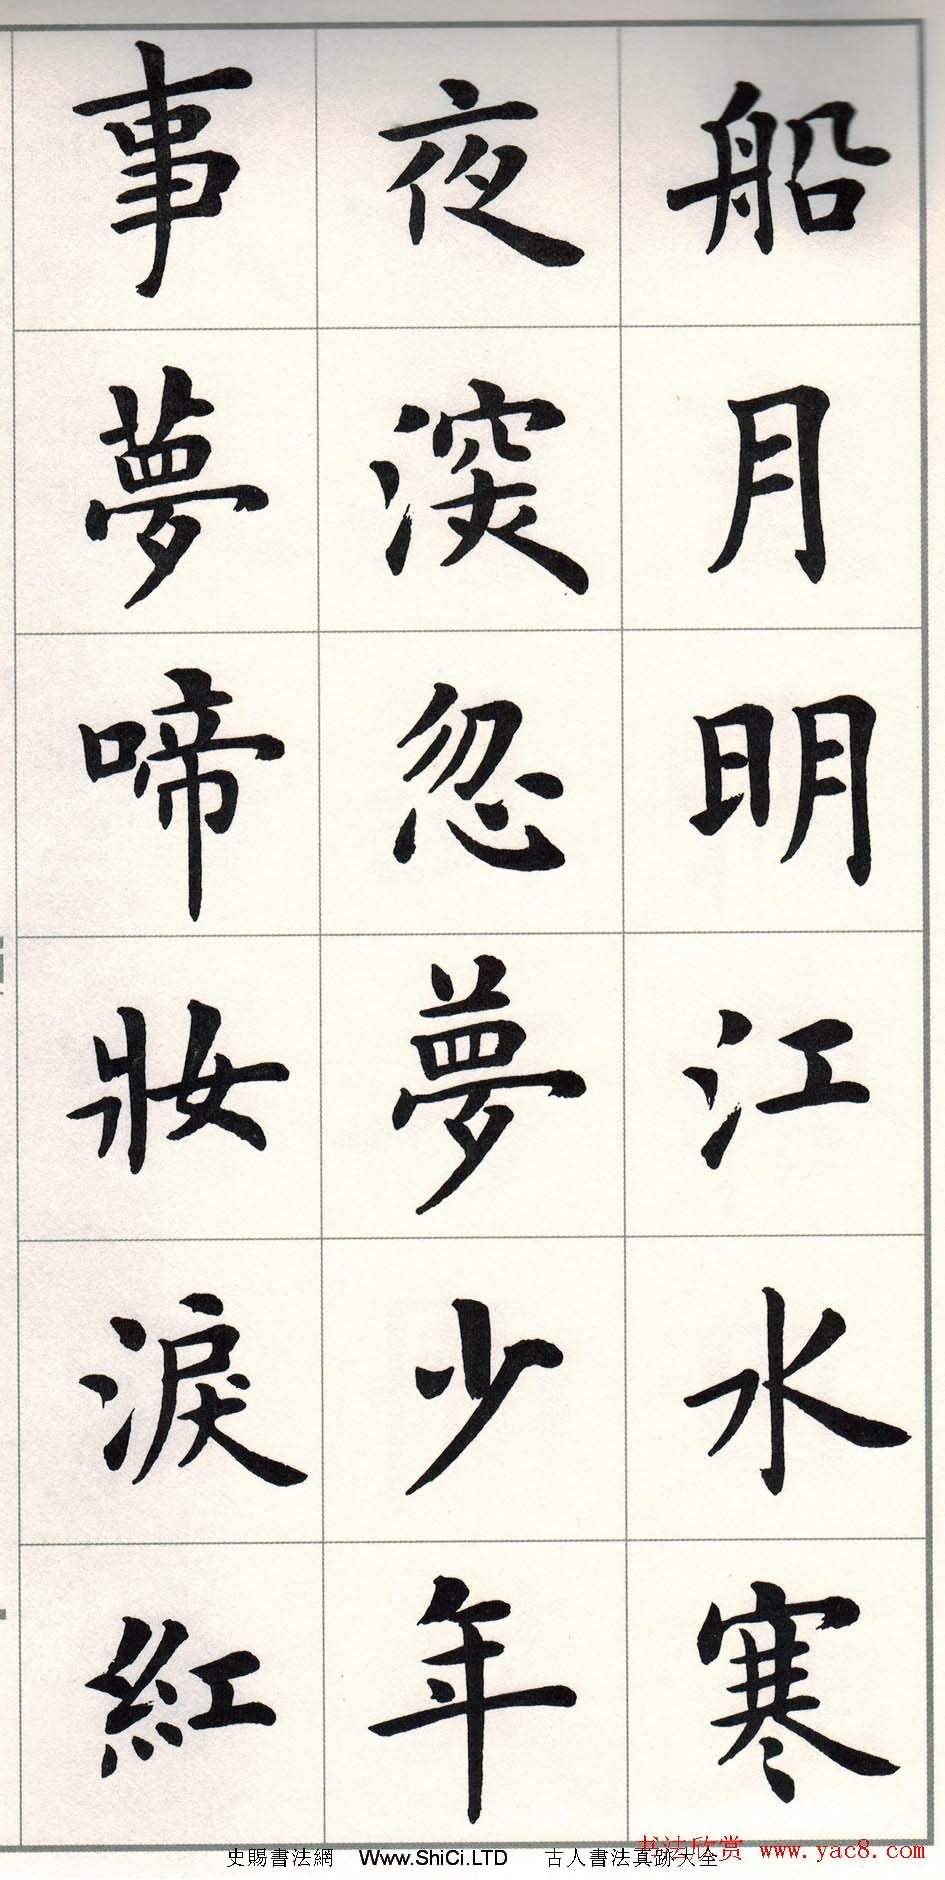 船月明江水寒
夜深忽夢少年
事夢啼妝淚紅
史賜書法網 Www.ShiCi.LTD 古人書法真跡大全
书法欣赏 www.yac8.com